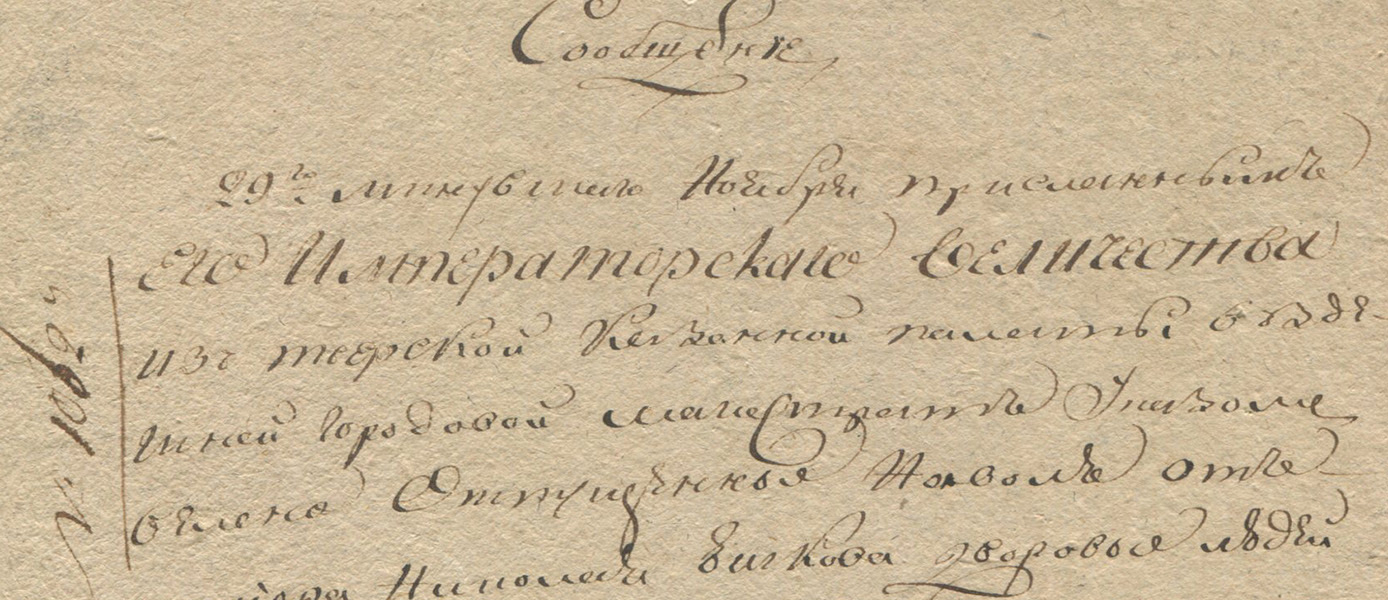 Сообщение
29го минувшаго Ноября присланнымъ
Его Императорскаго Величества
изъ тверской Казенной палаты въ зде-
шней городовой магистратъ Указомъ
велено Отпущенныя Наволю отъ
Николая дворовыя людей